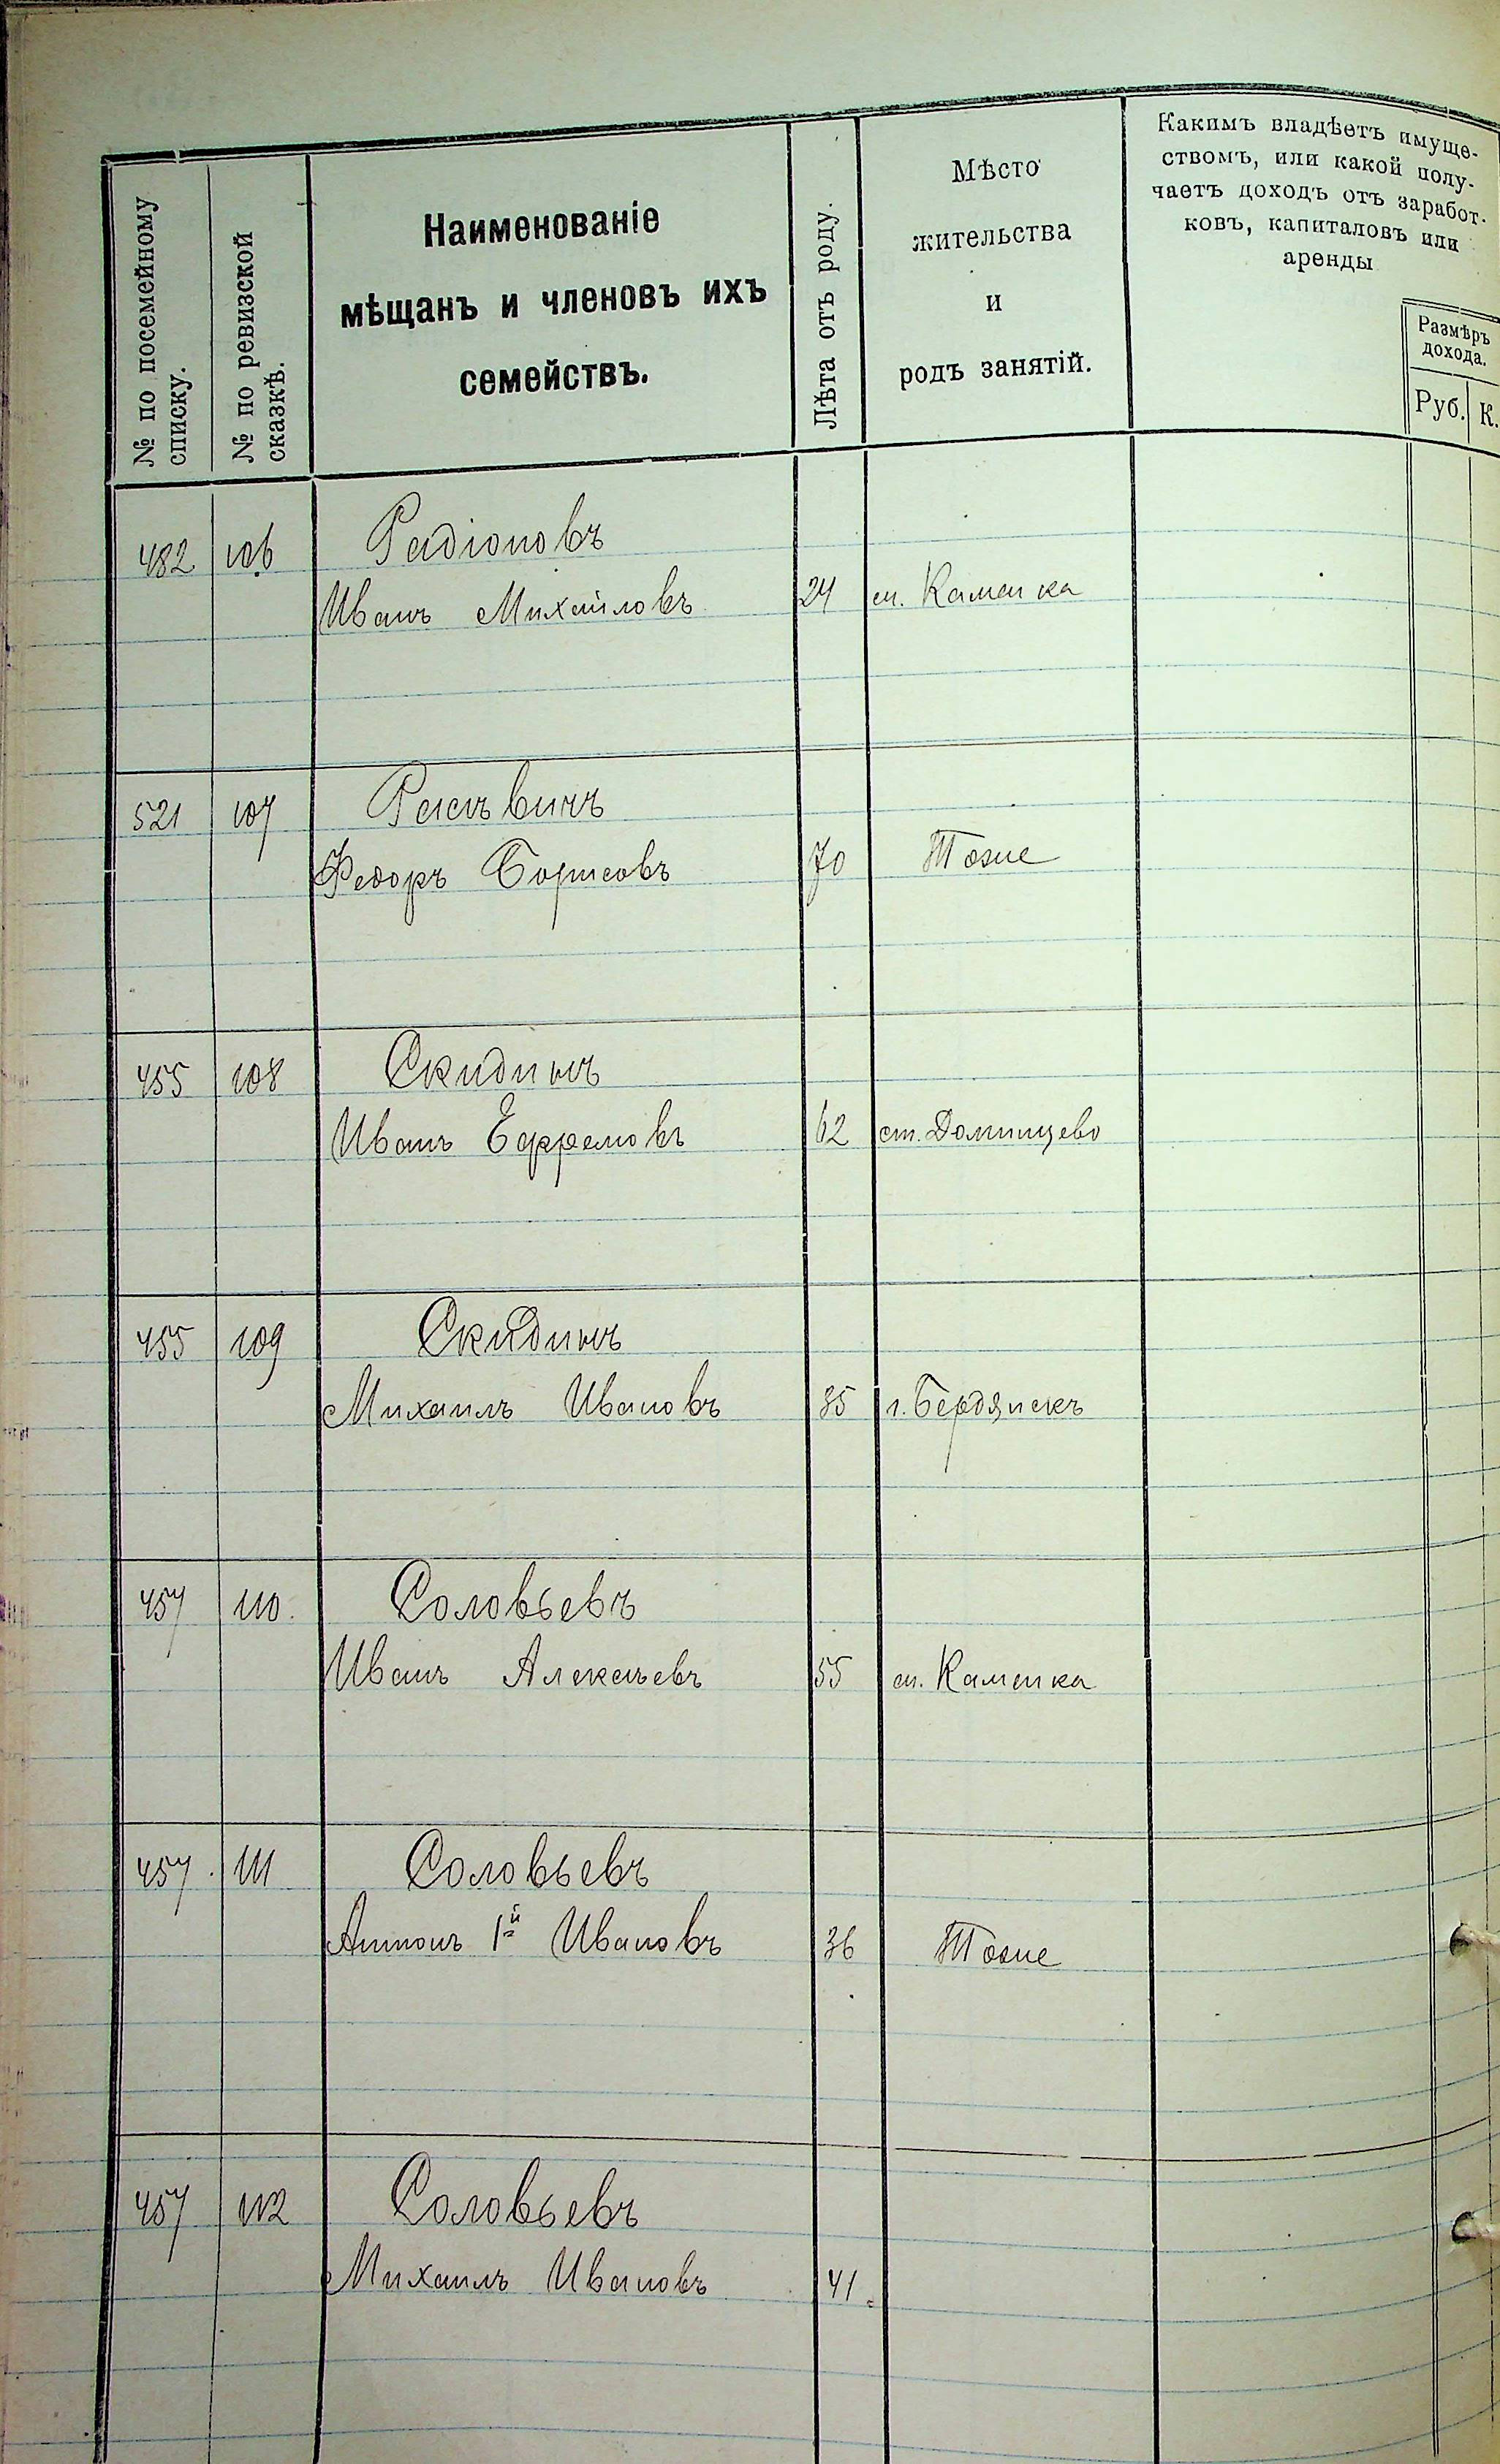 № по посемейному
списку.
№ по ревизской
сказкѣ.
Наименованіе
мѣщанъ и членовъ ихъ
семействъ.
Лѣта отъ роду.
Мѣсто
жительства
и
родъ занятій.
Какимъ владѣетъ имуще-
ствомъ, или какой полу-
чаетъ доходъ отъ заработ-
ковъ, капиталовъ или
аренды
Размѣръ
дохода.
Руб. К.
482 106 Радіоновъ
Иванъ Михайловъ 24 ст. Каменка
521 107
Федоръ Борисовъ 70 Тоже
455 108 Скидинъ
Иванъ Ефремовъ 62 ст.
455 109 Скидинъ
Михаилъ Ивановъ 35 г. Бердянскъ
457 110. Соловьевъ
Иванъ Алексѣевъ 55 ст. Каменка
457. 111 Соловьевъ
Антонъ 1й Ивановъ 36 Тоже
457 112 Соловьевъ
Михаилъ Ивановъ 41